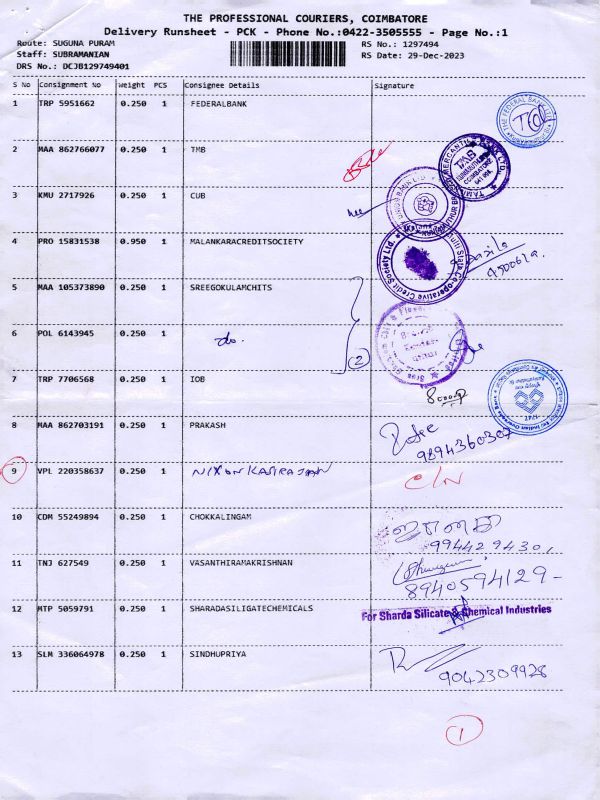 THE PROFESSIONAL COURIERS, COIMBATORE
Delivery Runsheet - PCK - Phone No.:0422-3505555 - Page No.:1
Route: SUGUNA PURAM
Staff: SUBRAMANIAN
DRS No.: DCJB129749401
RS No.: 1297494
RS Date: 29-Dec-2023
S No Consignment No Weight PCS Consignee Details Signature
1 TRP 5951662 0.250 1 FEDERALBANK
2 MAA 862766077 0.250 1 TMB
3 KMU 2717926 0.250 1 CUB
4 PRO 15831538 0.950 1 MALANKARACREDITSOCIETY
5 MAA 105373890 0.250 1 SREEGOKULAMCHITS
6 POL 6143945 0.250 1 do. (2)
7 TRP 7706568 0.250 1 IOB
8 MAA 862703191 0.250 1 PRAKASH
9894360307
9 VPL 220358637 0.250 1 NIXON KASIRAJAN C/N
10 CDM 55249894 0.250 1 CHOKKALINGAM
9944294301
11 TNJ 627549 0.250 1 VASANTHIRAMAKRISHNAN
8940594129-
12 MTP 5059791 0.250 1 SHARADASILIGATECHEMICALS For Sharda Silicate & Chemical Industries
13 SLM 336064978 0.250 1 SINDHUPRIYA
9042309928
1